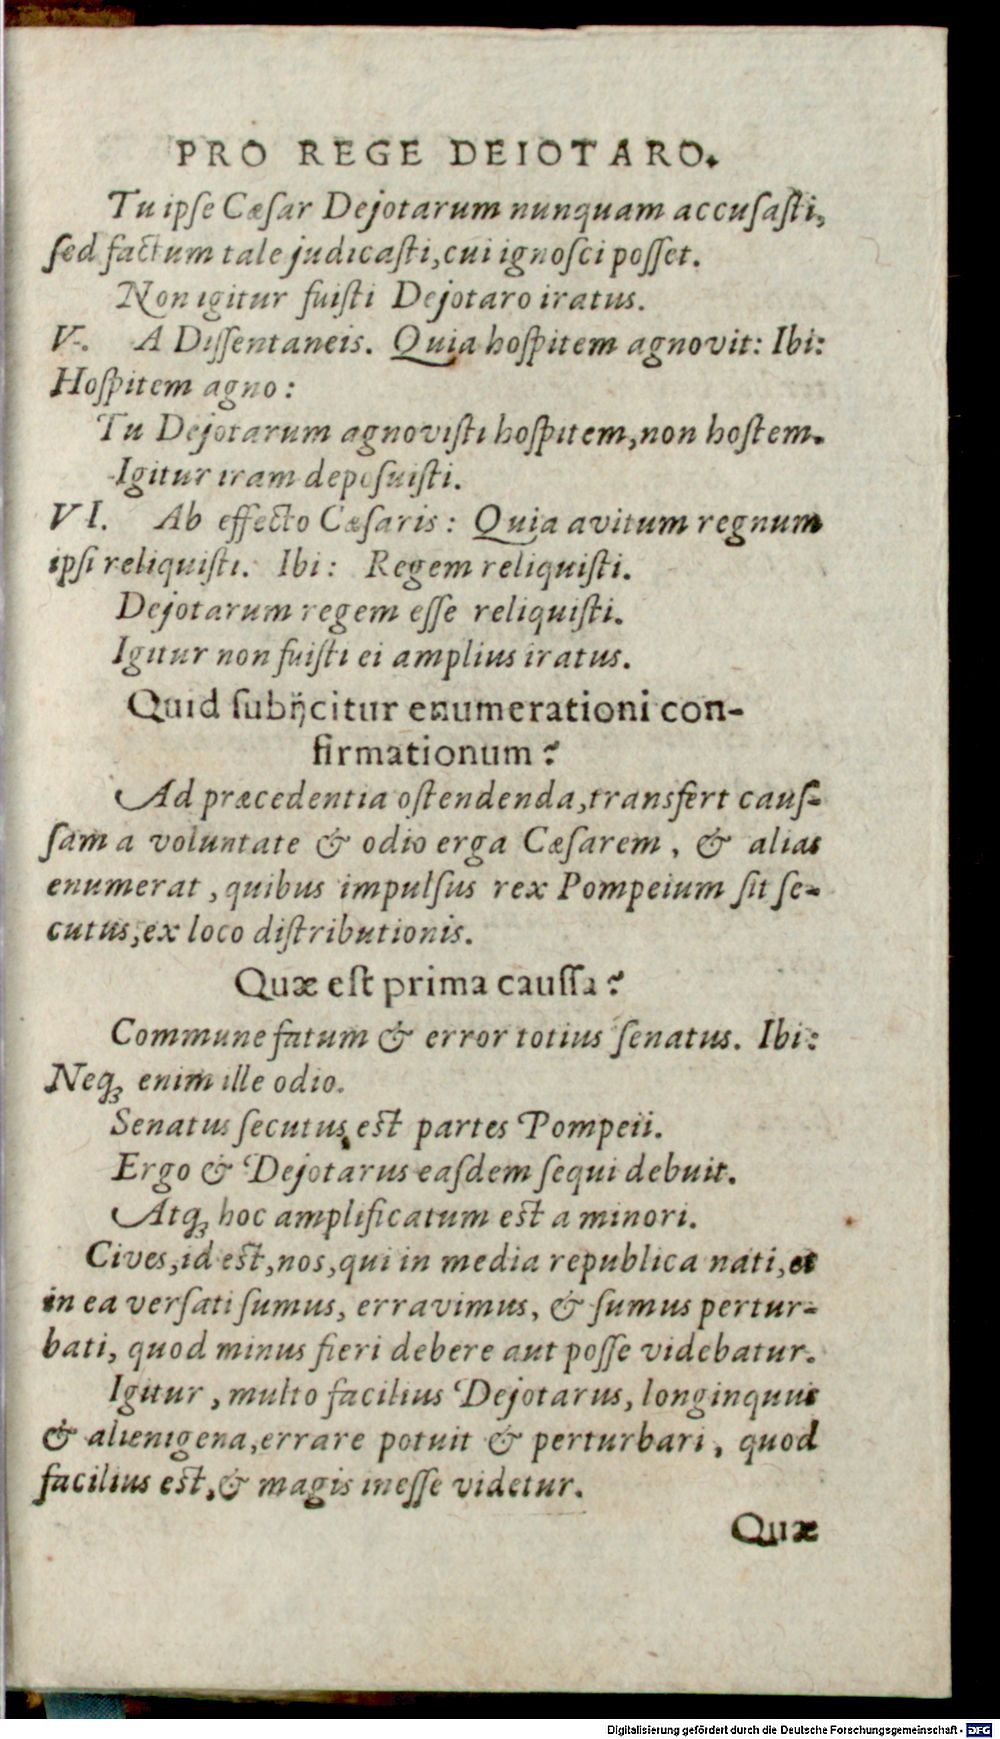 PRO REGE DEIOTARO.
Tu ipſe Cæſar Dejotarum nunquam accuſaſti,
ſed factum tale judicaſti, cui ignoſci poſſet.
Non igitur fuiſti Dejotaro iratus.
V. A Diſſentaneis. Quia hoſpitem agnovit: Ibi:
Hoſpitem agno:
Tu Dejotarum agnoviſti hoſpitem, non hoſtem.
Igitur iram depoſuiſti.
VI. Ab effecto Cæſaris: Quia avitum regnum
ipſi reliquiſti. Ibi: Regem reliquiſti.
Dejotarum regem eſſe reliquiſti.
Igitur non fuiſti ei amplius iratus.
Quid ſubijcitur enumerationi con-
firmationum?
Ad præcedentia oſtendenda, transfert cauſ-
ſam a voluntate & odio erga Cæſarem, & alias
enumerat, quibus impulſus rex Pompeium ſit ſe-
cutus, ex loco diſtributionis.
Quæ eſt prima cauſſa?
Commune fatum & error totius ſenatus. Ibi:
Neq; enim ille odio.
Senatus ſecutus eſt partes Pompeii.
Ergo & Dejotarus easdem ſequi debuit.
Atq; hoc amplificatum eſt a minori.
Cives, id eſt, nos, qui in media republica nati, et
in ea verſati ſumus, erravimus, & ſumus pertur-
bati, quod minus fieri debere aut poſſe videbatur.
Igitur, multo facilius Dejotarus, longinquus
& alienigena, errare potuit & perturbari, quod
facilius eſt, & magis ineſſe videtur.
Quæ
Digitalisierung gefördert durch die Deutsche Forschungsgemeinschaft - DFG